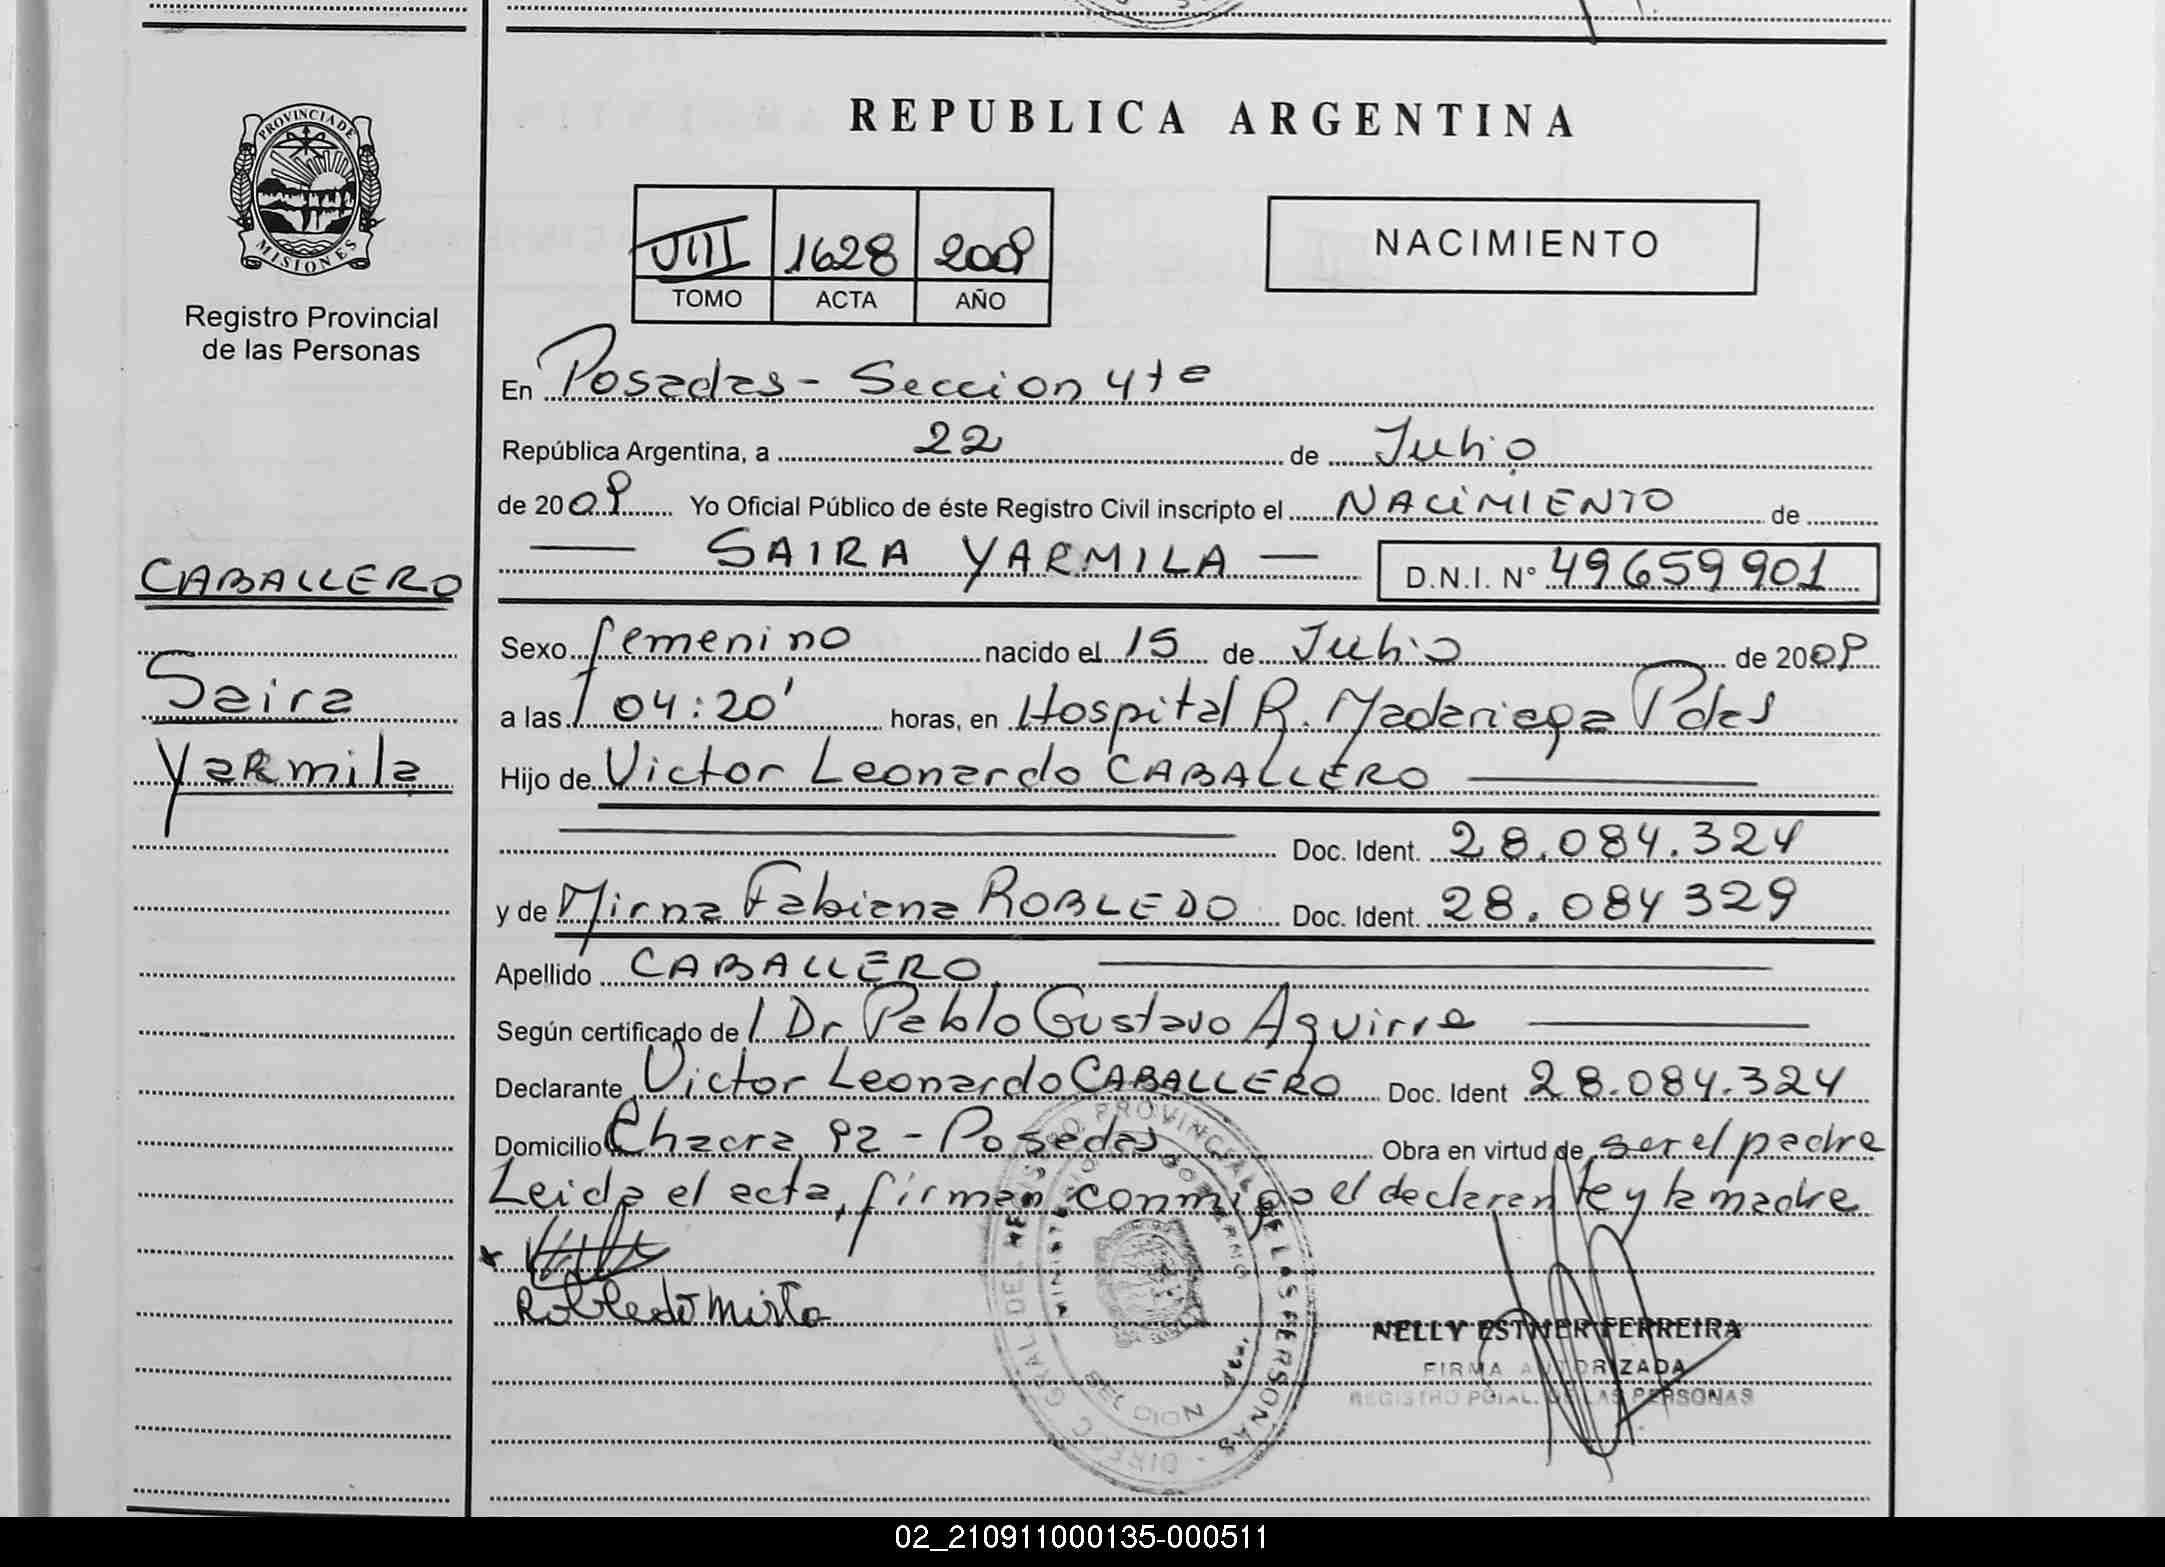 PROVINCIA DE
MISIONES
Registro Provincial
de las Personas
CABALLERO
Saira
Yarmila
REPUBLICA ARGENTINA
VIII 1628 2009
TOMO ACTA AÑO
NACIMIENTO
En Posadas - Seccion 4ta
República Argentina, a 22 de Julio
de 2009 Yo Oficial Público de éste Registro Civil inscripto el NACIMIENTO de
SAIRA YARMILA D.N.I. N° 49659901
Sexo femenino nacido el 15 de Julio de 2009
a las 04:20' horas, en Hospital R. Madariaga Pdas
Hijo de Victor Leonardo CABALLERO
Doc. Ident. 28.084.324
y de Mirna Fabiana ROBLEDO Doc. Ident. 28.084329
Apellido CABALLERO
Según certificado de / Dr. Pablo Gustavo Aguirre
Declarante Victor Leonardo CABALLERO Doc. Ident 28.084.324
Domicilio Chacra 92 - Posadas Obra en virtud de ser el padre
Leida el acta, firman conmigo el declarante y la madre
Robledo Mirta
DIRECC GRAL DEL REGISTRO PROVINCIAL DE LAS PERSONAS
MINISTERIO DE GOBIERNO
NELLY ESTHER FERREIRA
FIRMA AUTORIZADA
REGISTRO PCIAL. DE LAS PERSONAS
02_210911000135-000511